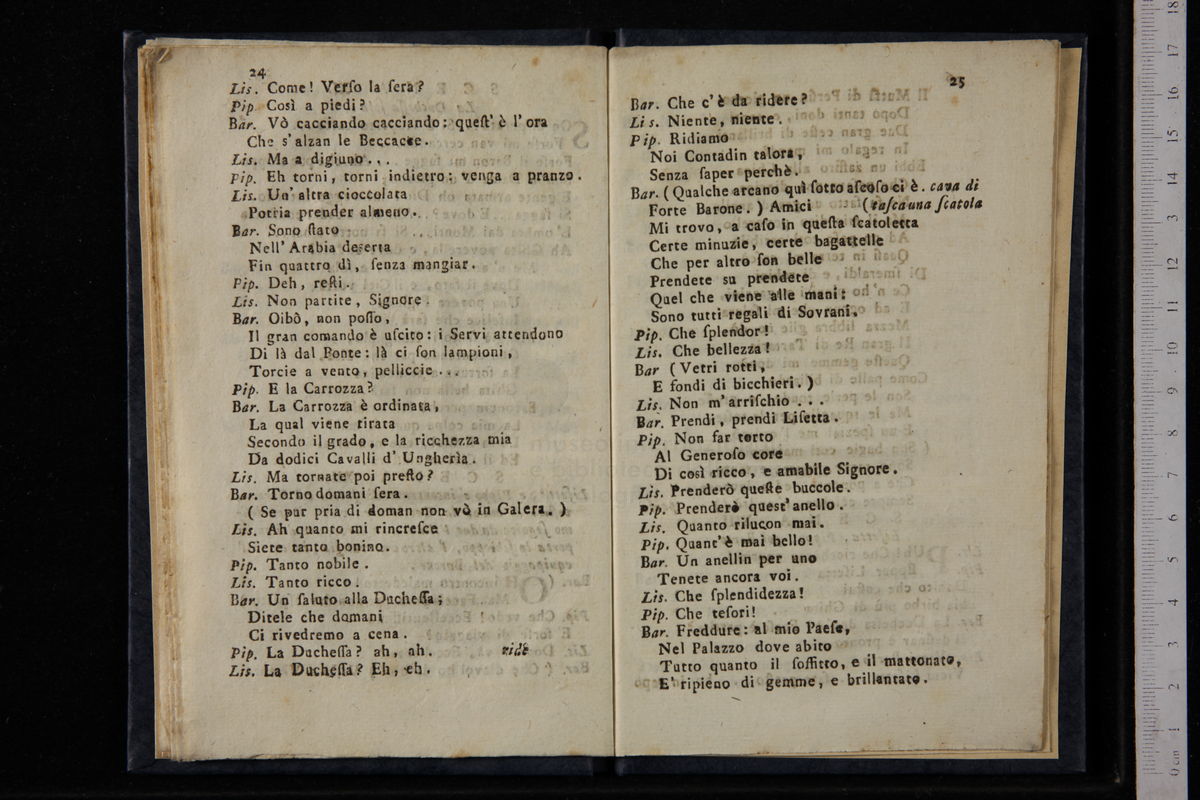 24
Lis. Come! Verſo la ſera?
Pip. Così a piedi?
Bar. Vò cacciando cacciando: queſt' è l' ora
Che s' alzan le Beccacce.
Lis. Ma a digiuno...
Pip. Eh torni, torni indietro; venga a pranzo.
Lis. Un' altra cioccolata
Potria prender almeno.
Bar. Sono ſtato
Nell' Arabia deserta
Fin quattro dì, ſenza mangiar.
Pip. Deh, reſti.
Lis. Non partite, Signore.
Bar. Oibò, non poſſo,
Il gran comando è uſcito: i Servi attendono
Di là dal Ponte: là ci ſon lampioni,
Torcie a vento, pelliccie...
Pip. E la Carrozza?
Bar. La Carrozza è ordinata,
La qual viene tirata
Secondo il grado, e la ricchezza mia
Da dodici Cavalli d' Ungherìa.
Lis. Ma tornate poi preſto?
Bar. Torno domani ſera.
( Se pur pria di doman non vò in Galera. )
Lis. Ah quanto mi rincreſce
Siete tanto bonino.
Pip. Tanto nobile.
Lis. Tanto ricco.
Bar. Un ſaluto alla Ducheſſa;
Ditele che domani
Ci rivedremo a cena.
Pip. La Ducheſſa? ah, ah. ride
Lis. La Ducheſſa? Eh, eh.
25
Bar. Che c' è da ridere?
Lis. Niente, niente.
Pip. Ridiamo
Noi Contadin talora,
Senza ſaper perchè.
Bar. ( Qualche arcano quì ſotto aſcoſo ci è. cava di
Forte Barone. ) Amici (taſca una ſcatola
Mi trovo, a caſo in queſta ſcatoletta
Certe minuzie, certe bagattelle
Che per altro ſon belle
Prendete su prendete
Quel che viene alle mani:
Sono tutti regali di Sovrani.
Pip. Che ſplendor!
Lis. Che bellezza!
Bar (Vetri rotti,
E fondi di bicchieri. )
Lis. Non m' arriſchio...
Bar. Prendi, prendi Liſetta.
Pip. Non far torto
Al Generoſo core
Di così ricco, e amabile Signore.
Lis. Prenderò queſte buccole.
Pip. Prenderò quest' anello.
Lis. Quanto rilucon mai.
Pip. Quant' è mai bello!
Bar. Un anellin per uno
Tenete ancora voi.
Lis. Che ſplendidezza!
Pip. Che teſori!
Bar. Freddure: al mio Paeſe,
Nel Palazzo dove abito
Tutto quanto il ſoffitto, e il mattonato,
E' ripieno di gemme, e brillantato.
0 cm 1 2 3 4 5 6 7 8 9 10 11 12 13 14 15 16 17 18